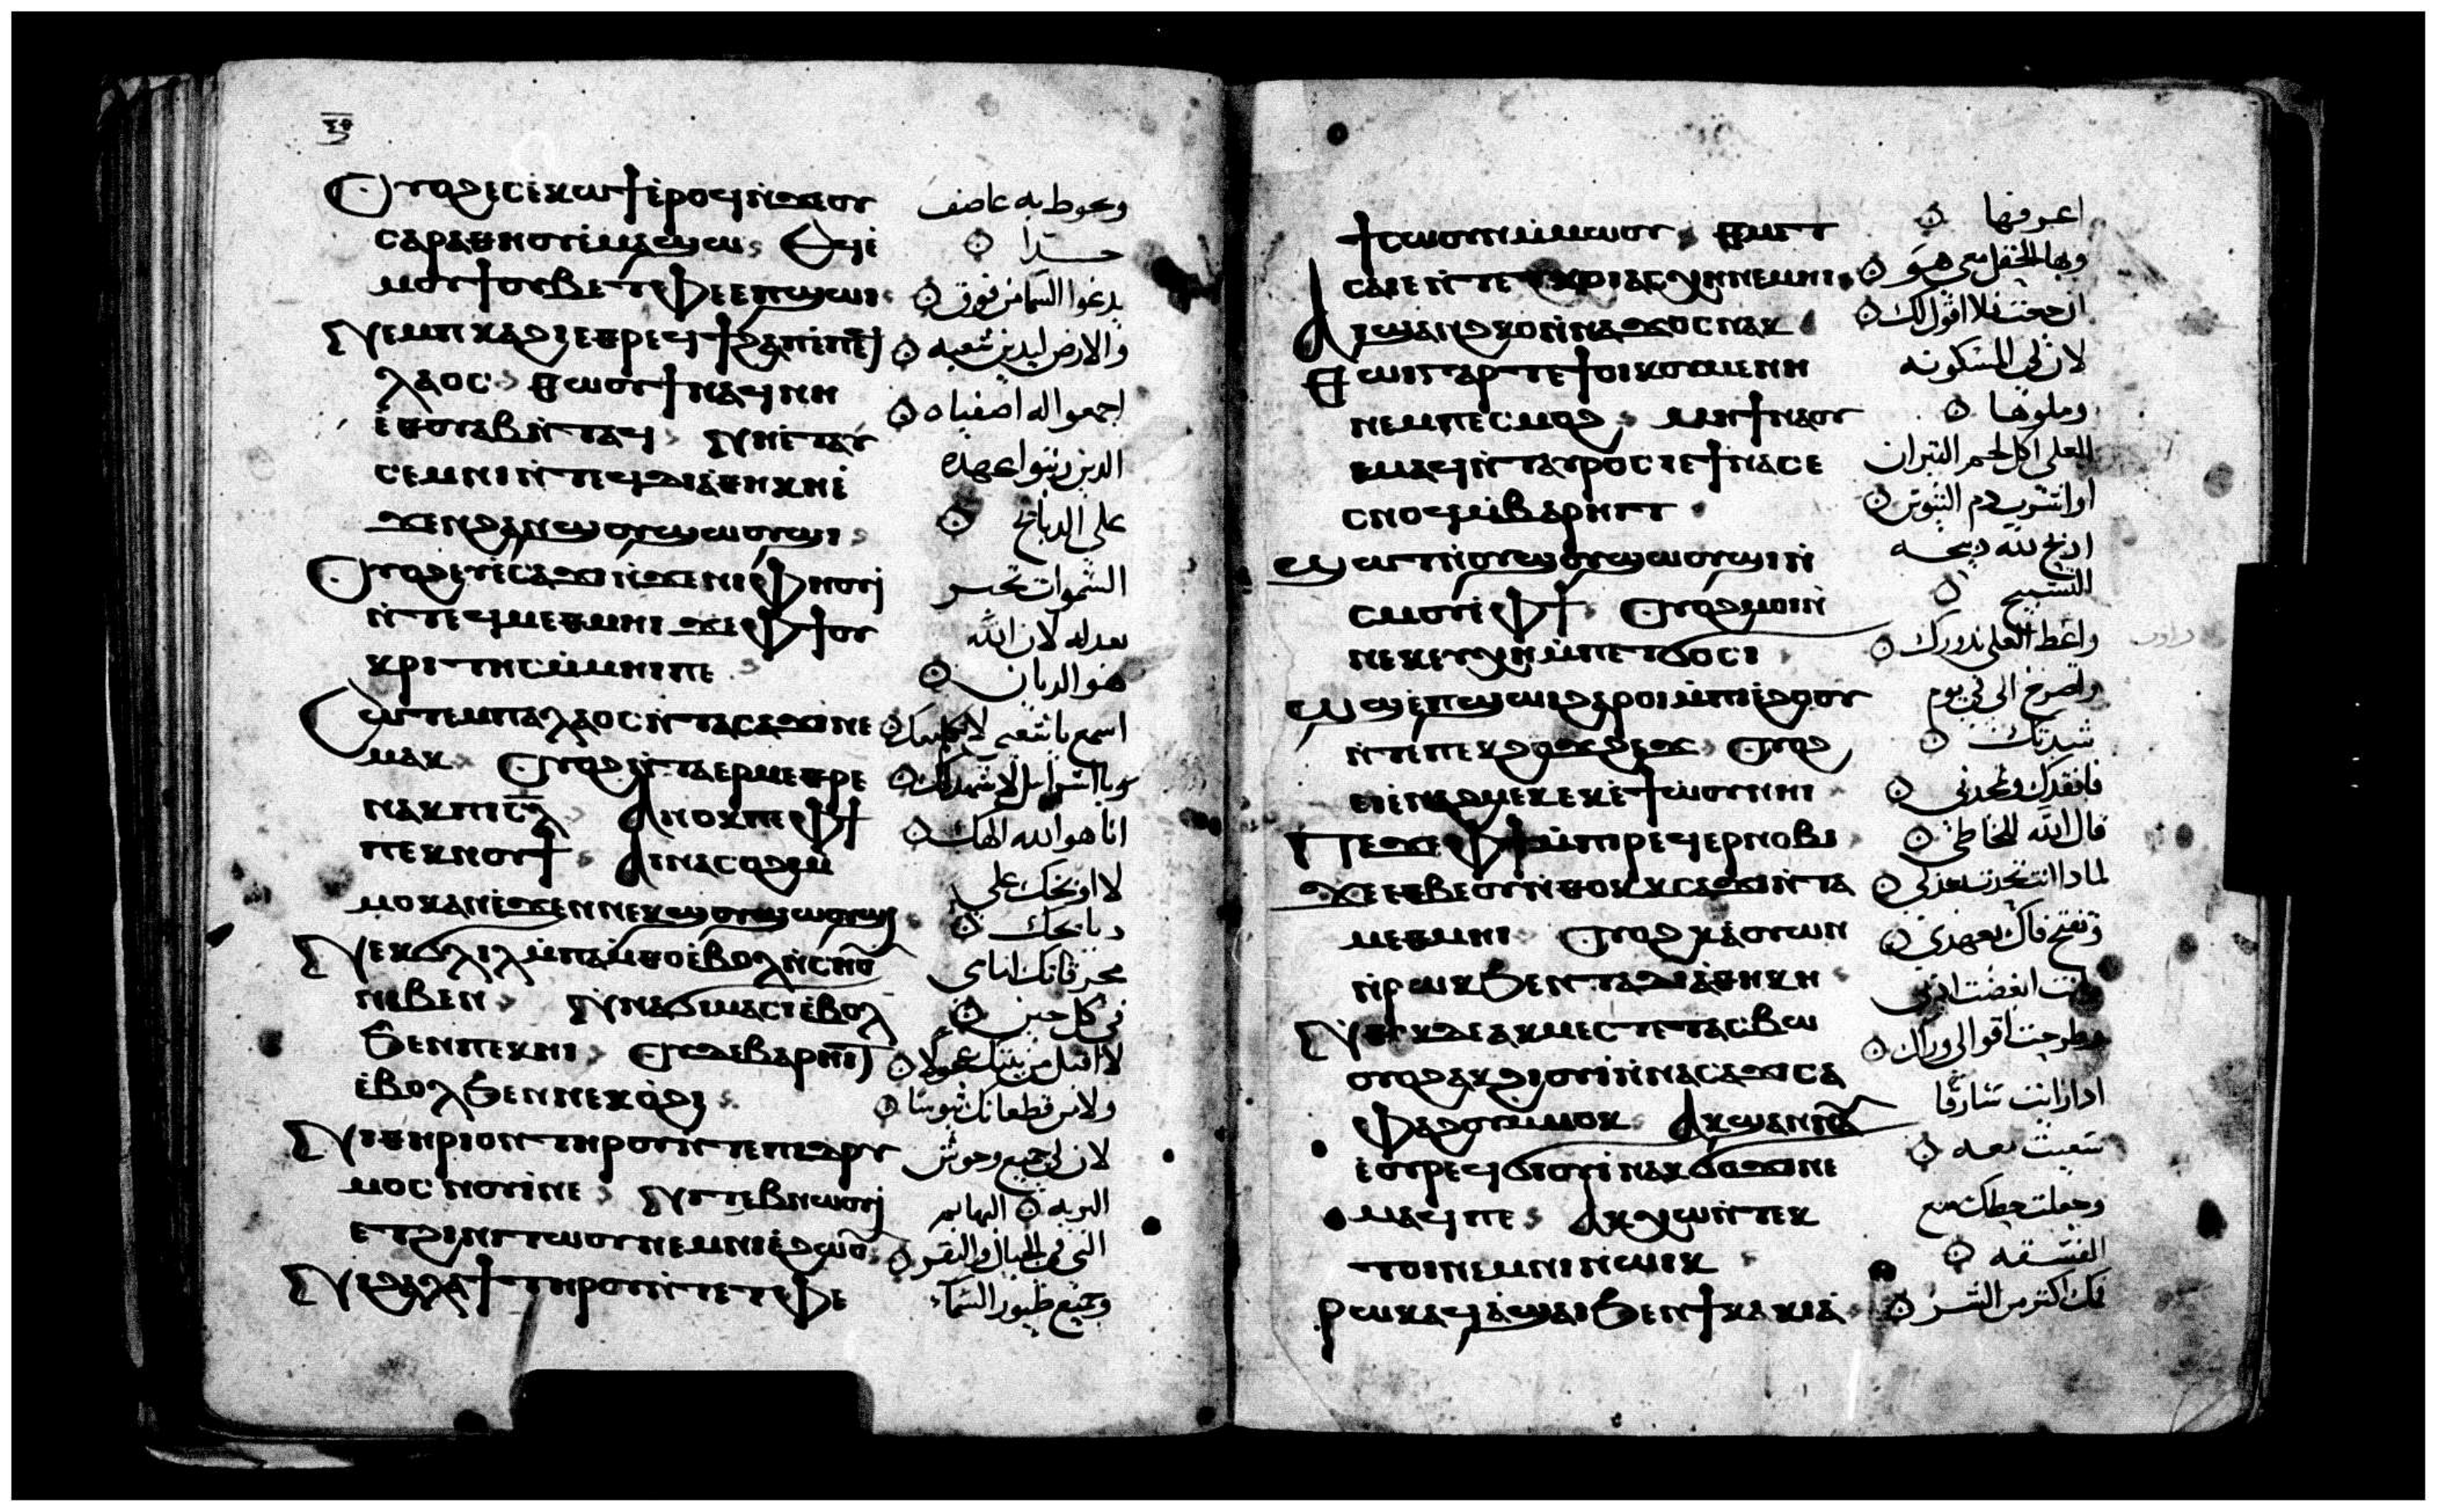 Ⲟⲩⲟϩ ⲉⲥⲉ̀ⲕⲱϯ ⲉ̀ⲣⲟϥ ⲛ̀ϫⲉⲟⲩ
ⲥⲁⲣⲁⲑⲏⲟⲩ ⲉ̀ⲙⲁϣⲱ Ⲉϥⲉ̀
ⲙⲟⲩϯ ⲟⲩⲃⲉ ⲧⲫⲉ ⲉⲡϣⲱⲓ
Ⲛⲉⲙ ⲡⲕⲁϩⲓ ⲉⲑⲣⲉϥϯϩⲁⲡ ⲉ̀ⲡⲉϥ
ⲗⲁⲟⲥ ⲑⲱⲟⲩϯ ⲛⲁϥ ⲛⲏ
ⲉ̀ⲑⲟⲩⲁⲃ ⲛ̀ⲧⲁϥ Ⲛⲏ ⲉ̀ⲧⲁⲩ
ⲥⲉⲙⲛⲓ ⲛ̀ⲧⲉϥⲇⲓⲁ̀ⲑⲏⲕⲏ ⲉ̀
ϫⲉⲛ ϩⲁⲛϣⲟⲩϣⲱⲟⲩϣⲓ
Ⲟⲩⲟϩ ⲉⲩⲉ̀ⲥⲁϫⲓ ⲛ̀ϫⲉ ⲛⲓⲫⲏⲟⲩⲓ
ⲛ̀ⲧⲉϥⲙⲉⲑⲙⲏⲓ ϫⲉ ⲫϯ ⲟⲩ
ⲕⲣⲓⲧⲏⲥ ⲙ̀ⲙⲏⲓ ⲡⲉ
Ⲥⲱⲧⲉⲙ ⲡⲁⲗⲁⲟⲥ ⲛ̀ⲧⲁⲥⲁϫⲓ ⲛⲉ
ⲙⲁⲕ Ⲟⲩⲟϩ ⲛ̀ⲧⲁⲉⲣⲙⲉⲑⲣⲉ
ⲛⲁⲕ ⲡⲓⲥ̅ⲗ̅ Ⲁⲛⲟⲕ ⲡⲉ ⲫϯ
ⲡⲉⲕⲛⲟⲩϯ Ⲁⲓⲛⲁⲥⲟϩⲓ ⲙ̀
ⲙⲟⲕ ⲁⲛ ⲉ̀ϫⲉⲛ ⲛⲉⲕϣⲟⲩϣⲱⲟⲩϣⲓ
Ⲛⲉⲕϭⲗⲓⲗ ⲙ̀ⲡⲁⲙ̀ⲑⲟ ⲉ̀ⲃⲟⲗ ⲛ̀ⲥⲏⲟⲩ
ⲛⲓⲃⲉⲛ Ⲛ̀ⲛⲁϭⲓ ⲙⲁⲥⲓ ⲉ̀ⲃⲟⲗ
ϧⲉⲛ ⲡⲉⲕⲏⲓ ⲟⲩⲇⲉ ⲃⲁⲣⲏⲓⲧ
ⲉ̀ⲃⲟⲗ ϧⲉⲛ ⲛⲉⲕⲟ̀ϩⲓ
Ⲛⲓⲑⲏⲣⲓⲟⲛ ⲧⲏⲣⲟⲩ ⲛ̀ⲧⲉ ⲡⲓϩⲣⲩ
ⲙⲟⲥ ⲛⲟⲩⲓ ⲛⲉ Ⲛⲓⲧⲉⲃⲛⲱⲟⲩⲓ
ⲉⲧϩⲓ ⲛⲓⲧⲱⲟⲩ ⲛⲉⲙ ⲛⲓⲉ̀ϩⲱⲟⲩ
Ⲛⲓϩⲁⲗⲁϯ ⲧⲏⲣⲟⲩ ⲛ̀ⲧⲉ ⲧⲫⲉ
ويحوط به عاصف
جدا
يدعوا السما من فوق
والارض ليدين شعبه
اجمعوا له اصفياه
الدين رتبوا عهده
علي الدبايح
السموات تخبر
بعدله لان الله
هو الديان
اسمع يا شعبي لاكلمك
ويا اسرايل لاشهد لك
انا هو الله الهك
لا اوبخك علي
دبايحك
محرقاتك امامي
في كل حين
لا اقبل من بيتك عجولا
ولا من قطعانك تيوسا
لان لي جميع وحوش
البريه البهايم
التي في الجبال والبقر
وجميع طيور السماء
ϯⲥⲱⲟⲩⲛ ⲙ̀ⲙⲱⲟⲩ ⲑⲙⲉⲧ
ⲥⲁⲓⲉ ⲛ̀ⲧⲉ ⲧⲕⲟⲓ ⲁⲥⲭⲏ ⲛⲉⲙⲏⲓ
Ⲁⲓϣⲁⲛϩⲕⲟ ⲛ̀ⲛⲁϫⲟⲥ ⲛⲁⲕ
Ⲑⲱⲓ ⲅⲁⲣ ⲧⲉ ϯⲟⲓⲕⲟⲩⲙⲉⲛⲏ
ⲛⲉⲙ ⲡⲉⲥⲙⲟϩ ⲙⲏ ϯⲛⲁⲟⲩ
ⲉⲙ ⲁϥ ⲛ̀ⲧⲁⲩⲣⲟⲥ ⲓⲉ ϯⲛⲁⲥⲉ
ⲥⲛⲟϥ ⲙ̀ⲃⲁⲣⲏⲓⲧ
Ϣⲱⲧ ⲛ̀ⲟⲩϣⲟⲩϣⲱⲟⲩϣⲓ ⲛ̀
ⲥⲙⲟⲩ ⲉ̀ⲫϯ Ⲟⲩⲟϩ ⲙⲟⲓ
ⲛⲉⲕⲉⲩⲭⲏ ⲙ̀ⲡⲉⲧϭⲟⲥⲓ
Ⲱϣ ⲉ̀ⲡϣⲱⲓ ϩⲁⲣⲟⲓ ⲙ̀ⲡⲉ̀ϩⲟⲟⲩ
ⲛ̀ⲧⲉ ⲡⲉⲕϩⲟϫϩⲉϫ Ⲟⲩⲟϩ
ⲉⲓⲉ̀ⲛⲁϩⲙⲉⲕ ⲉⲕⲉ̀ϯⲱⲟⲩ ⲛⲏⲓ
Ⲡⲉϫⲉ ⲫϯ ⲙ̀ⲡⲓⲣⲉϥⲉⲣⲛⲟⲃⲓ
ϫⲉ ⲉⲑⲃⲉⲟⲩ ⲛ̀ⲑⲟⲕ ⲕⲥⲁϫⲓ ⲛ̀ⲧⲁ
ⲙⲉⲑⲙⲏⲓ Ⲟⲩⲟϩ ⲕⲁ̀ⲟⲩⲱⲛ
ⲛ̀ⲣⲱⲕ ϧⲉⲛ ⲧⲁⲇⲓⲁ̀ⲑⲏⲕⲏ
Ⲛ̀ⲑⲟⲕ ⲇⲉ ⲁⲕⲙⲉⲥⲧⲉ ⲧⲁⲥⲃⲱ
ⲟⲩⲟϩ ⲁⲕϩⲓⲟⲩⲓ ⲛ̀ⲛⲁⲥⲁϫⲓ ⲥⲁ
ⲫⲁϩⲟⲩ ⲙ̀ⲙⲟⲕ Ⲁⲕϣⲁⲛⲛⲁⲩ
ⲉ̀ⲟⲩⲣⲉϥϭⲓⲟⲩⲓ ⲛⲁⲕϭⲟϫⲓ ⲛⲉ
ⲙⲁϥ ⲡⲉ Ⲁⲕⲭⲱ ⲛ̀ⲧⲉⲕ
ⲧⲟⲓ ⲛⲉⲙ ⲛⲓⲛⲱⲓⲕ
Ⲣⲱⲕ ⲁϥⲁ̀ϣⲁⲓ ϧⲉⲛ ϯⲕⲁⲕⲓⲁ̀
اعرفها
وبها الحقل معي هو
ان جعت فلا اقول لك
لان لي المسكونه
وملوها
لعلي اكل لحم التيران
او اشرب دم التيوس
ادبح لله دبيحه
التسبيح
واعط العلي ندورك
واصرخ الي في يوم
شدتك
فانقدك وتمجدني
قال الله للخاطي
لمادا انت تتحدت بعدلي
وتفتح فاك بعهدي
وانت ابغضت ادبي
وطرحت اقوالي وراك
ادا رايت سارقا
سعيت معه
وجعلت حظك مع
الفسقه
فمك اكتر من الشر